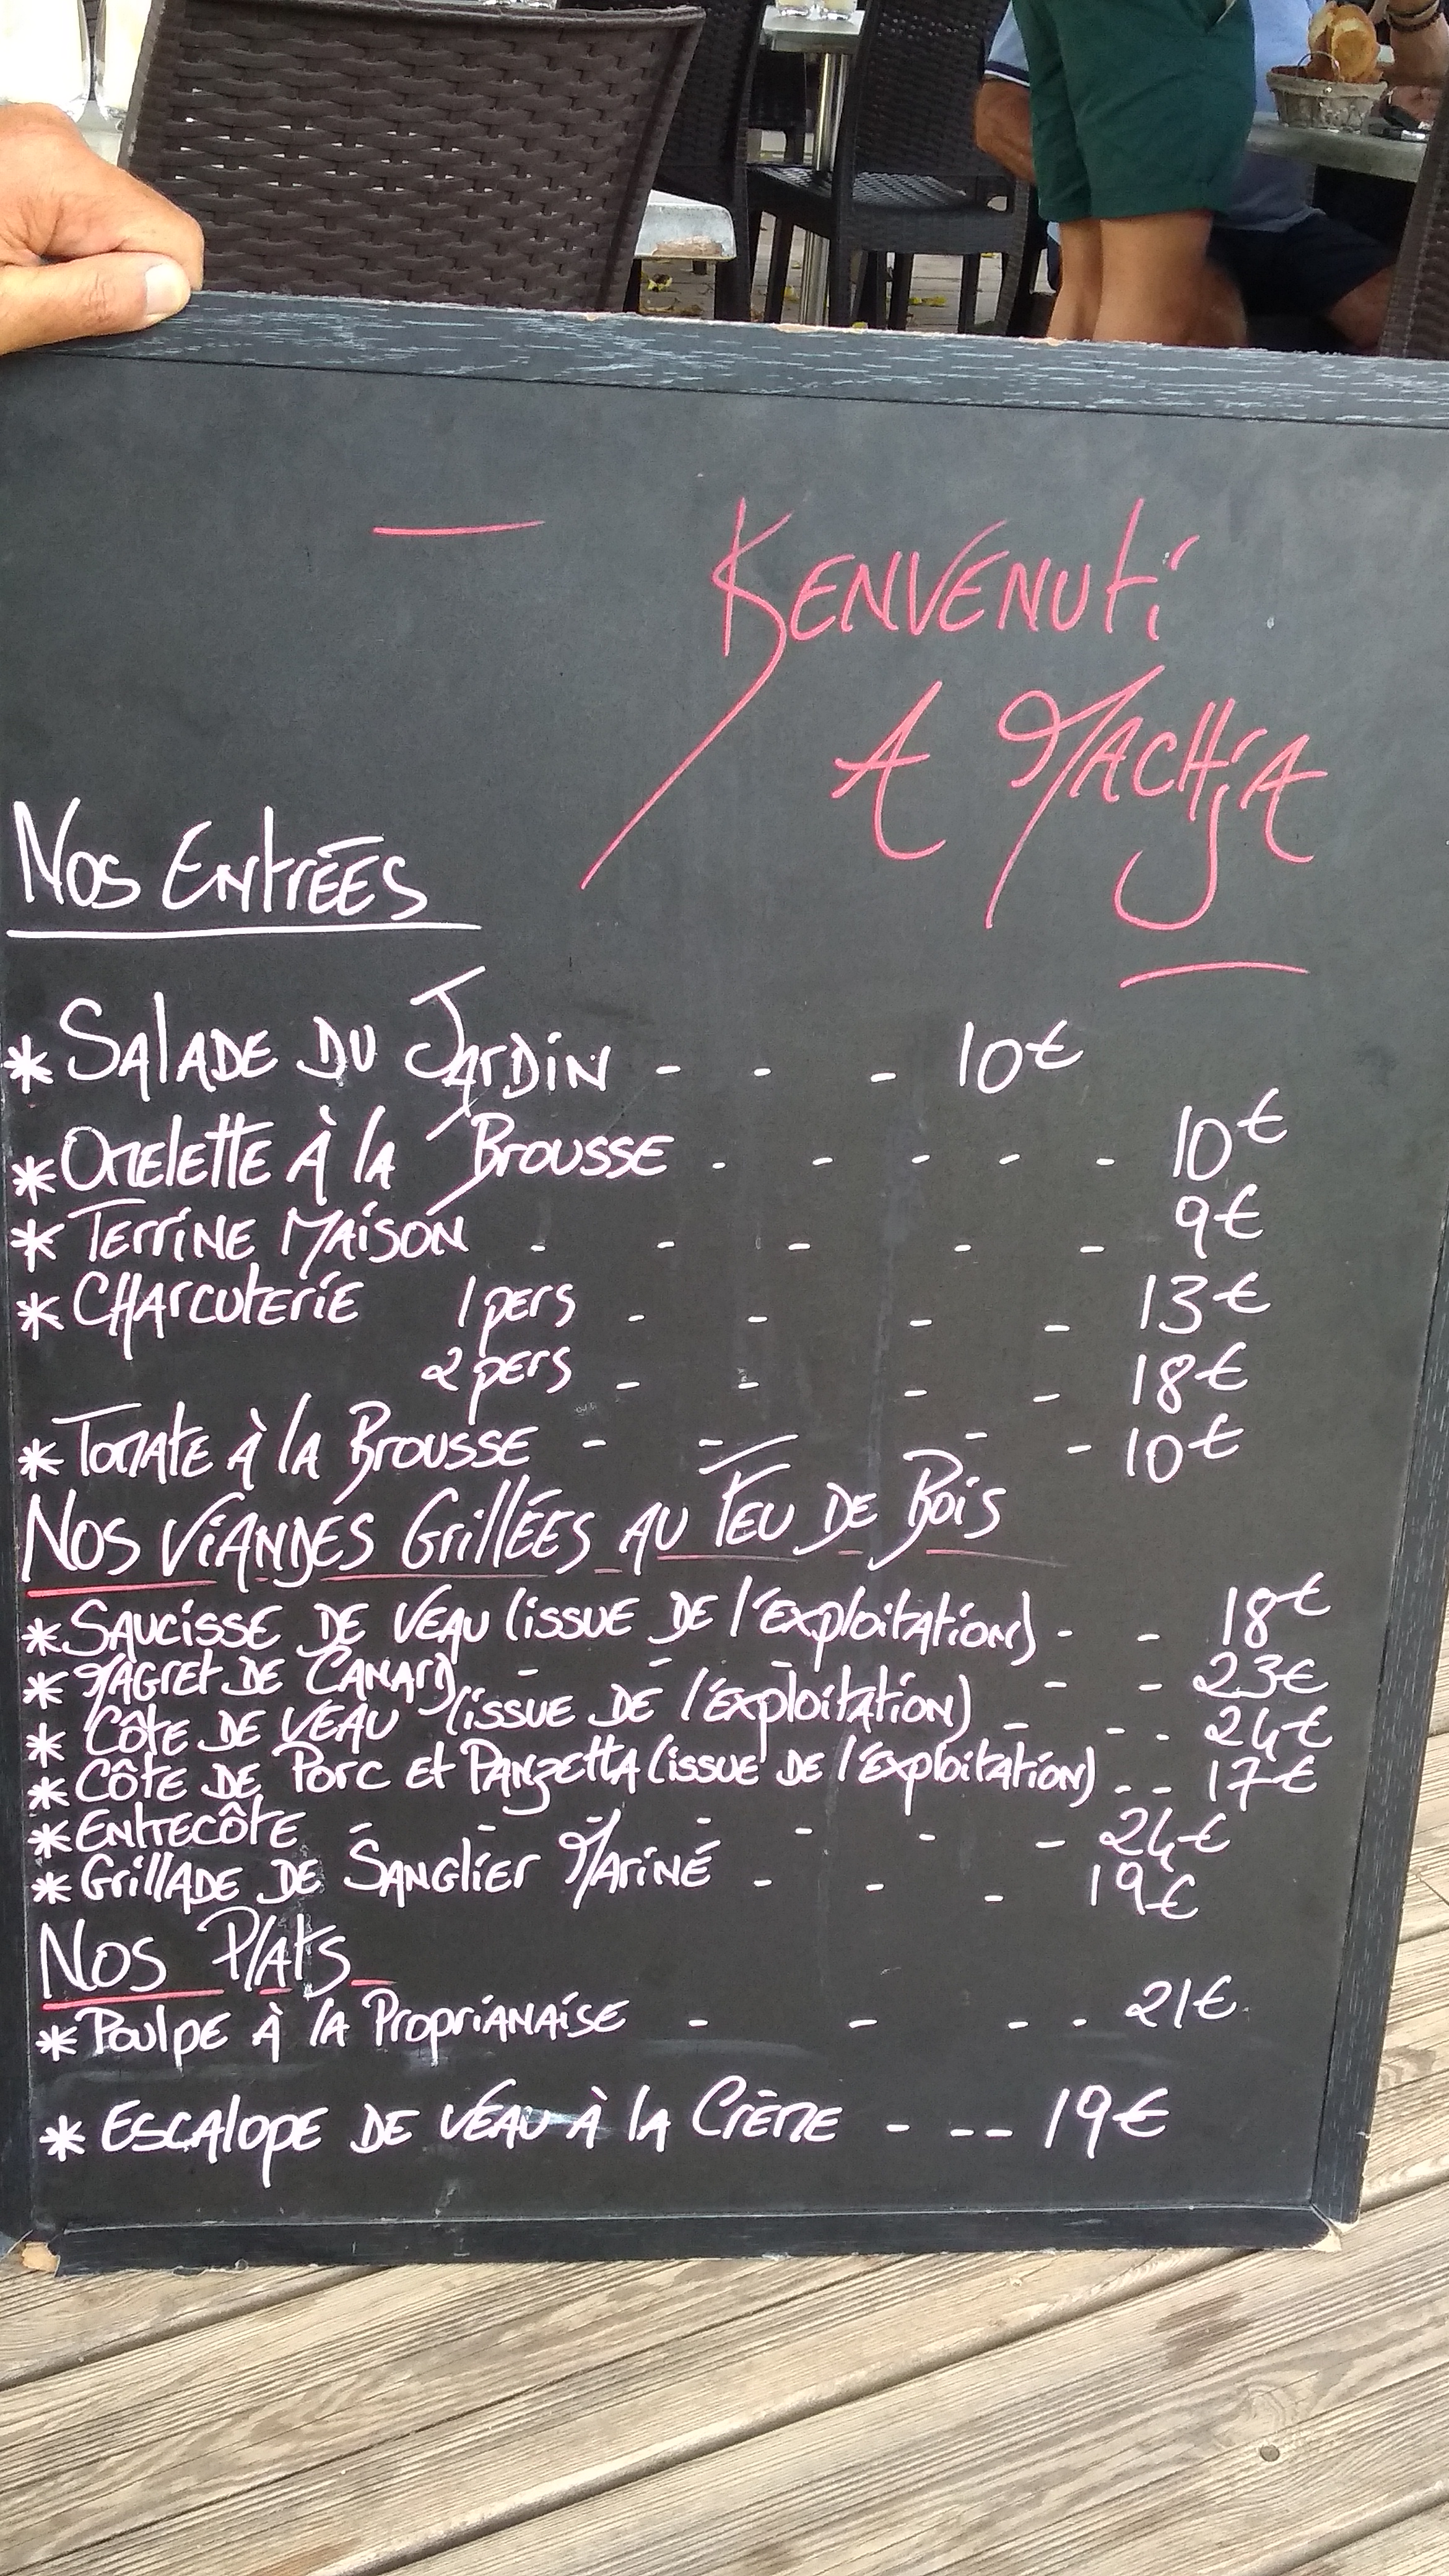 Benvenuti
A Machja
Nos Entrées
* Salade du Jardin - - - 10€
* Omelette à la Brousse - - - - - 10€
* Terrine Maison - - - - - 9€
* Charcuterie 1 pers - - - - 13€
2 pers - - - - 18€
* Tomate à la Brousse - - - - 10€
Nos Viandes Grillées au Feu de Bois
* Saucisse de Veau (issue de l'exploitation) - - 18€
* Magret de Canard - - - - - 23€
* Côte de Veau (issue de l'exploitation) - - - 24€
* Côte de Porc et Panzetta (issue de l'exploitation) - - 17€
* Entrecôte - - - - - - - 24€
* Grillade de Sanglier Mariné - - - 19€
Nos Plats
* Poulpe à la Proprianaise - - - - 21€
* Escalope de Veau à la Crème - - - 19€